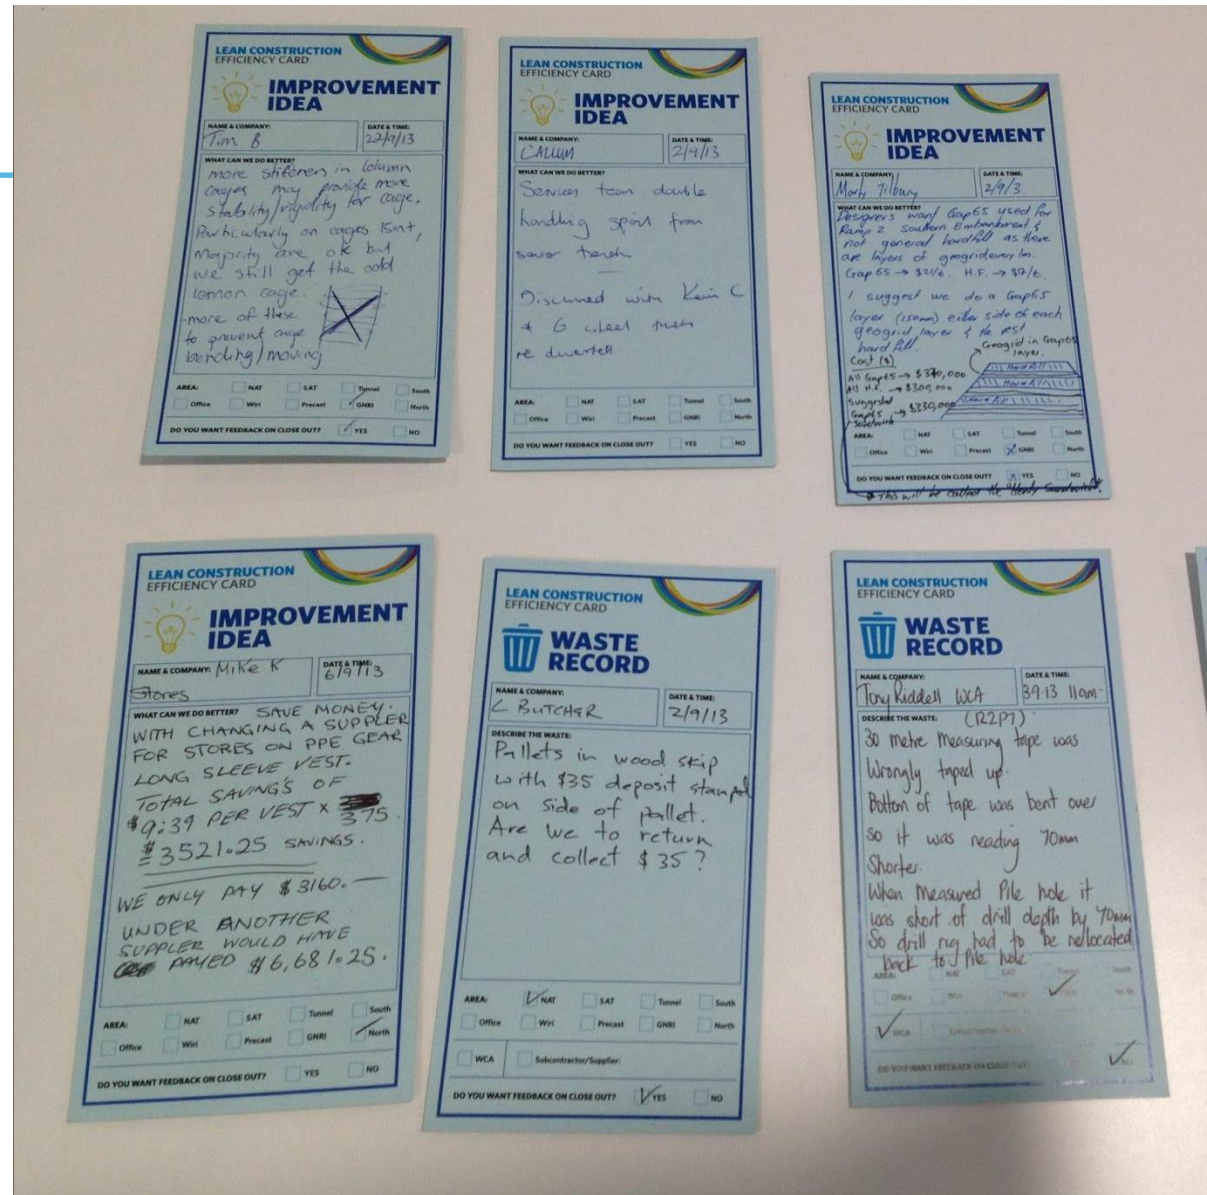 LEAN CONSTRUCTION
EFFICIENCY CARD
IMPROVEMENT
IDEA
NAME & COMPANY:
Tim B
DATE & TIME:
22/9/13
WHAT CAN WE DO BETTER?
more stifeners in column
cages may provide more
stability/rigidity for cage.
Particularly on cages 15mt,
Majority are ok but
we still get the odd
lemon cage.
-more of these
to prevent cage
bending/moving
AREA: NAT SAT Tunnel South
Office Wiri Precast GNRI North
DO YOU WANT FEEDBACK ON CLOSE OUT? YES NO
LEAN CONSTRUCTION
EFFICIENCY CARD
IMPROVEMENT
IDEA
NAME & COMPANY:
CALLUM
DATE & TIME:
2/9/13
WHAT CAN WE DO BETTER?
Services team double
handling spoil from
sewer trench
Discussed with Kevin C
& 6 wheel truck
re diverted.
AREA: NAT SAT Tunnel South
Office Wiri Precast GNRI North
DO YOU WANT FEEDBACK ON CLOSE OUT? YES NO
LEAN CONSTRUCTION
EFFICIENCY CARD
IMPROVEMENT
IDEA
NAME & COMPANY:
Marty Tilbury
DATE & TIME:
2/9/3.
WHAT CAN WE DO BETTER?
Designers want Gap65 used for
Ramp 2 southern Embankment &
not general hardfill as there
are layers of geogrid every 1m.
Gap 65 → $21/t. H.F. → $17/t.
I suggest we do a Gap65
layer (150mm) either side of each
geogrid layer & the rest
hard fill.
Geogrid in Gap65
layer.
Cost ($)
All Gap65 → $370,000
All H.F. → $300,000
Suggested
Gap65 → $330,000
Sandwich
Hard fill
Hard fill
Hard fill
AREA: NAT SAT Tunnel South
Office Wiri Precast GNRI North
DO YOU WANT FEEDBACK ON CLOSE OUT? YES NO
* This will be called the "Sandwich".
LEAN CONSTRUCTION
EFFICIENCY CARD
IMPROVEMENT
IDEA
NAME & COMPANY: Mike K
Stores
DATE & TIME:
6/9/13
WHAT CAN WE DO BETTER? SAVE MONEY.
WITH CHANGING A SUPPLER
FOR STORES ON PPE GEAR
LONG SLEEVE VEST.
TOTAL SAVING'S OF
$9:39 PER VEST x 375.
= $3521.25 SAVINGS.
WE ONLY PAY $3160.—
UNDER ANOTHER
SUPPLER WOULD HAVE
PAYED $6,681.25.
AREA: NAT SAT Tunnel South
Office Wiri Precast GNRI North
DO YOU WANT FEEDBACK ON CLOSE OUT? YES NO
LEAN CONSTRUCTION
EFFICIENCY CARD
WASTE
RECORD
NAME & COMPANY:
C BUTCHER
DATE & TIME:
2/9/13
DESCRIBE THE WASTE:
Pallets in wood skip
with $35 deposit stamped
on side of pallet.
Are we to return
and collect $35?
AREA: NAT SAT Tunnel South
Office Wiri Precast GNRI North
WCA Subcontractor/Supplier:
DO YOU WANT FEEDBACK ON CLOSE OUT? YES NO
LEAN CONSTRUCTION
EFFICIENCY CARD
WASTE
RECORD
NAME & COMPANY:
Tony Riddell WCA
DATE & TIME:
3.9.13 11am.
DESCRIBE THE WASTE: (R2P7)
30 metre measuring tape was
Wrongly taped up.
Bottom of tape was bent over
so it was reading 70mm
Shorter.
When Measured Pile hole it
was short of drill depth by 70mm
So drill rig had to be relocated
back to Pile hole
AREA: NAT SAT Tunnel South
Office Wiri Precast North
WCA
DO YOU WANT FEEDBACK ON CLOSE OUT?